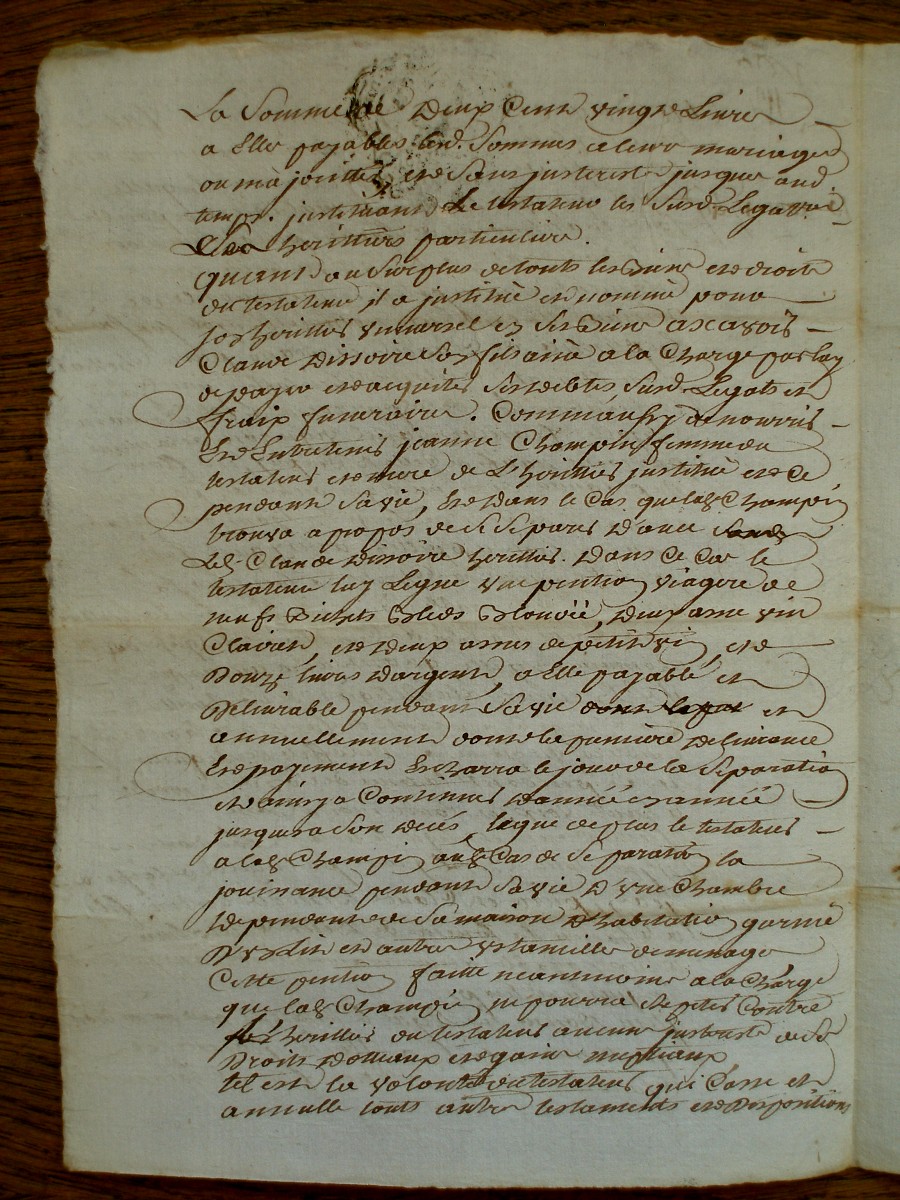 La Somme de Deux Cent vingt Livres
a Elle payables lesd. Sommes a leurs mariages
ou majorités et Sans jusques aud
temps. justituant Le testateur les Susd. Legataires
Ses herittiers particuliers.
quant au Surplus de touts les Biens et droits
du testateur il a justitué et nommé pour
Son herittier universel en Ses Biens a scavoir
Claude Dissoire Son fils ainé a la Charge par luy
de payer et acquiter Ses debtes Susd. Legats et
fraix funeraires. Comm' aussy de nourrir
Et Entretenir jeanne Champin femme du
testateur et mere de L'herittier justitué et Ce
pendant Sa vie, Et Dans le Cas que lad. Champin
trouva a propos de Se Separer D'avec
Led. Claude Dissoire herittier. Dans Ce Cas le
testateur luy Legue une pention viagere de
neufs Bichets Bleds Blondée, Deux anné vin
Clairet, et Deux annés de petit vin, et
Douze livres D'argent, a Elle payable et
Delivrable pendant Sa vie et
annuellement dont la premiere Delivrance
Et payement Echerra le jour de lad. Separation
et ainsy a Continuer D'année en année
jusques a Son Decés, legue de plus le testateur
a lad. Champin aud. Cas de Separation la
jouissance pendant Sa vie D'une Chambre
Dependante de Sa maison D'habitation garnie
D'un Lit et autres ustancilles de menage
Cette pention faitte neantmoins a la Charge
que lad. Champin ne pourra repeter Contre
herittier du testateur aucune de Ses
Droits Dotaux et gains nuptiaux
tel est la volonté du testateur qui Casse et
annulle touts autres testaments et Dispositions